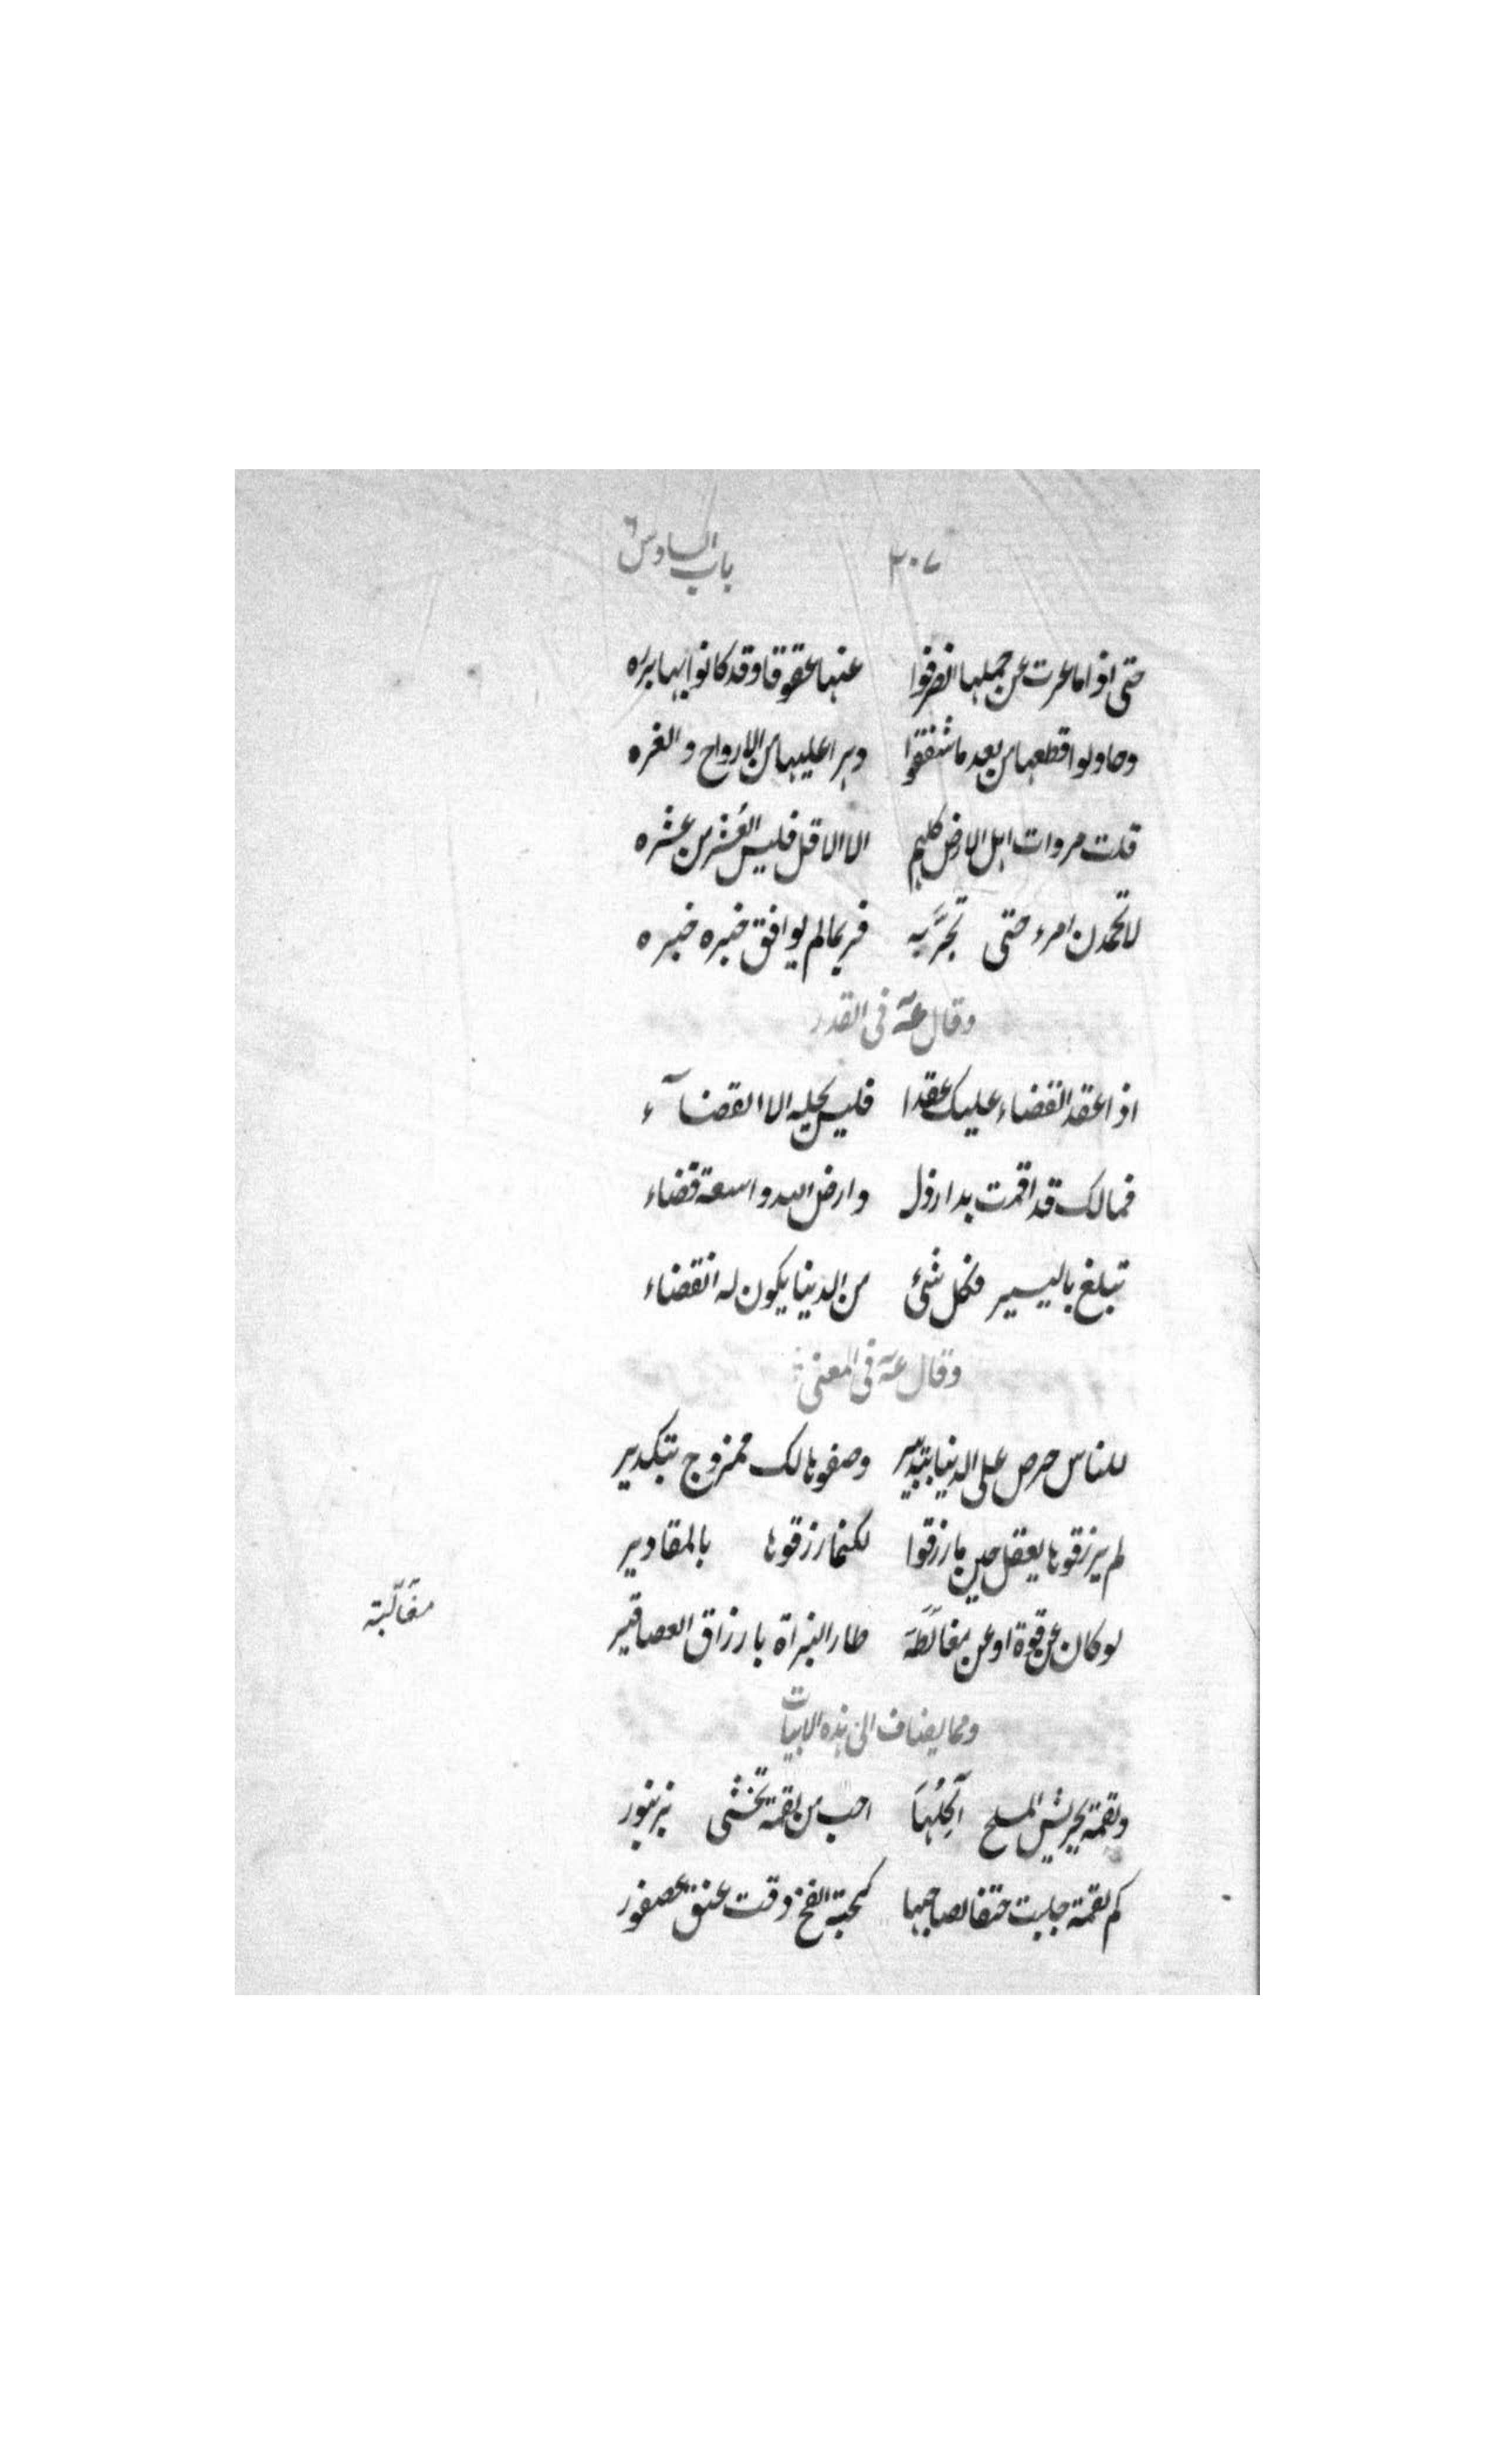 ٣٠٧ باب السادس ٦
حتى اذا ما عرت عن حملها انصرفوا عنها عقوقا وقد كانوا بها برره
وحاولوا قطعها من بعد ما شفقوا دهرا عليها من الارواح والغره
قلت مروات اهل الارض كلهم الا الاقل فليس العُشر من عشره
لا تحمدن امرء حتى تجرّبه فربما لم يوافق خبره خبره
وقال عۤه فى القدر
اذا عقد القضاء عليك عقدا فليس يحليه الا القضآء
فمالك قد اقمت بدار ذل وارض الله واسعة فضاء
تبلغ باليسير فكل شئ من الدنيا يكون له انقضاء
وقال عۤه فى المعنى
للناس حرص على الدنيا بتدبير وصفوها لك ممزوج بتكدير
لم يرزقوها بعقل حين ما رزقوا لكنما رزقوها بالمقادير
لو كان عن قوة او عن مغالَطَة طار البزاة بارزاق العصافير
مغاَلَبة
ومما يضاف الى هذه الابيات
ولقمة بجريش الملح آكلُهَا احب من لقمة تخشى بزنبور
كم لقمة جلبت حتفا لصاحبها كحبة الفخ دقت عنق عصفور